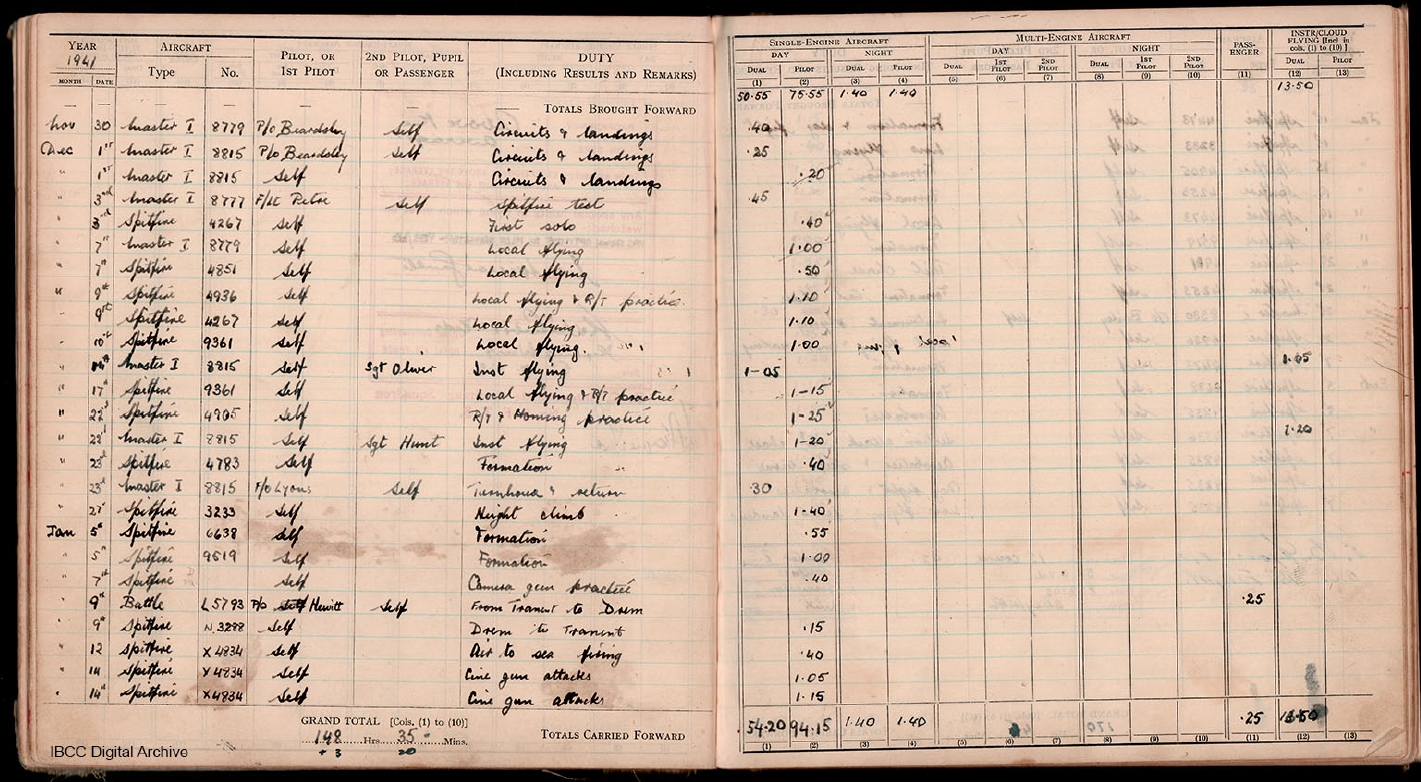 YEAR AIRCRAFT PILOT, OR 1ST PILOT 2ND PILOT, PUPIL OR PASSENGER DUTY (INCLUDING RESULTS AND REMARKS) SINGLE-ENGINE AIRCRAFT MULTI-ENGINE AIRCRAFT PASS-ENGER INSTR/CLOUD FLYING [Incl in cols. (1) to (10)]
1941 DAY NIGHT DAY NIGHT
MONTH DATE Type No. DUAL PILOT DUAL PILOT DUAL 1ST PILOT 2ND PILOT DUAL 1ST PILOT 2ND PILOT DUAL PILOT
(1) (2) (3) (4) (5) (6) (7) (8) (9) (10) (11) (12) (13)
— — — — — — TOTALS BROUGHT FORWARD 50.55 75.55 1.40 1.40 13.50
Nov 30 Master I 8779 P/o Beardsley Self Circuits & landings .40
Dec 1st Master I 8815 P/o Beardsley Self Circuits & landings .25
" 1st Master I 8815 Self Circuits & landings .20
" 3rd Master I 8777 F/Lt Petre Self Spitfire test .45
" 3rd Spitfire 4267 Self First solo .40
" 7th Master I 8779 Self Local flying 1.00
" 7th Spitfire 4851 Self Local flying .50
" 9th Spitfire 4936 Self Local flying & R/T practice 1.10
" 9th Spitfire 4267 Self Local flying 1.10
" 10th Spitfire 9361 Self Local flying. 1.00
" 14th Master I 8815 Self Sgt Oliver Inst flying 1-05 1.05
" 17th Spitfire 9361 Self Local flying & R/T practice 1-15
" 22nd Spitfire 4905 Self R/T & Homing practice 1-25
" 22nd Master I 8815 Self Sgt Hunt Inst flying 1-20 1.20
" 23rd Spitfire 4783 Self Formation .40
" 23rd Master I 8815 F/o Lyons Self Turnhouse & return .30
" 27th Spitfire 3233 Self Height climb 1-40
Jan 5th Spitfire 6638 Self Formation .55
" 5th Spitfire 9519 Self Formation 1.00
" 7th Spitfire Self Camera gun practice .40
" 9th Battle L5793 P/o Self Hewitt Self From Tranent to Drem .25
" 9th Spitfire N.3288 Self Drem to Tranent .15
" 12 Spitfire X4834 Self Air to sea firing .40
" 14 Spitfire X4834 Self Cine gun attacks 1.05
" 14th Spitfire X4834 Self Cine gun attacks 1.15
GRAND TOTAL [Cols. (1) to (10)] 148 Hrs. 35 Mins.
+3 20
TOTALS CARRIED FORWARD 54.20 94.15 1.40 1.40 .25 13.50
(1) (2) (3) (4) (5) (6) (7) (8) (9) (10) (11) (12) (13)
IBCC Digital Archive